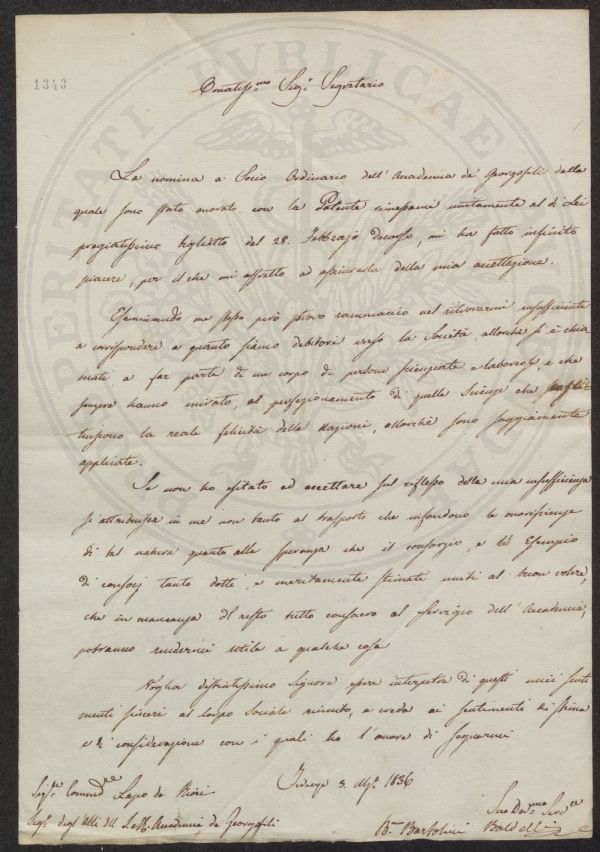 1343
Ornatiss.mo Sig.r Segretario
La nomina a Socio Ordinario dell'Accademia de' Georgofili della
quale sono stato onorato con la Patente rimessami unitamente al di Lei
pregiatissimo biglietto del 28. Febbrajo decorso, mi ha fatto infinito
piacere, per il che mi affretto a assicurarla della mia accettazione.
Esaminando me stesso però provo rammarico nel ritrovarmi insufficiente
a corrispondere a quanto siamo debitori verso la Società allorchè si è chia
mati a far parte di un corpo di persone scienziate e laboriose, e che
sempre hanno mirato al perfezionamento di quelle Scienze che costi
tuiscono la reale felicità delle Nazioni, allorchè sono saggiamente
applicate.
Se non ho esitato ad accettare sul riflesso della mia insufficienza
si attribuisca in me non tanto al trasporto che infondono le onorificenze
di tal natura quanto alla speranza che il consorzio, e lo Esempio
di consocj tanto dotti, e meritamente stimati uniti al buon volere,
che in mancanza del resto tutto consacro al servizio dell'Accademia,
potranno rendermi utile a qualche cosa
Voglia distintissimo Signore esser interpetre di questi miei senti
menti sinceri al Corpo Sociale riunito, e creda ai sentimenti di stima
e di considerazione con i quali ho l'onore di segnarmi
Firenze 3. Mzo. 1836
Sig.re Commend.re Lapo de Ricci
Suo Dev.mo Serv.re
Seg.o degli Atti dell' I. e R. Accademia de Georgofili
B.meo Bartolini Baldelli